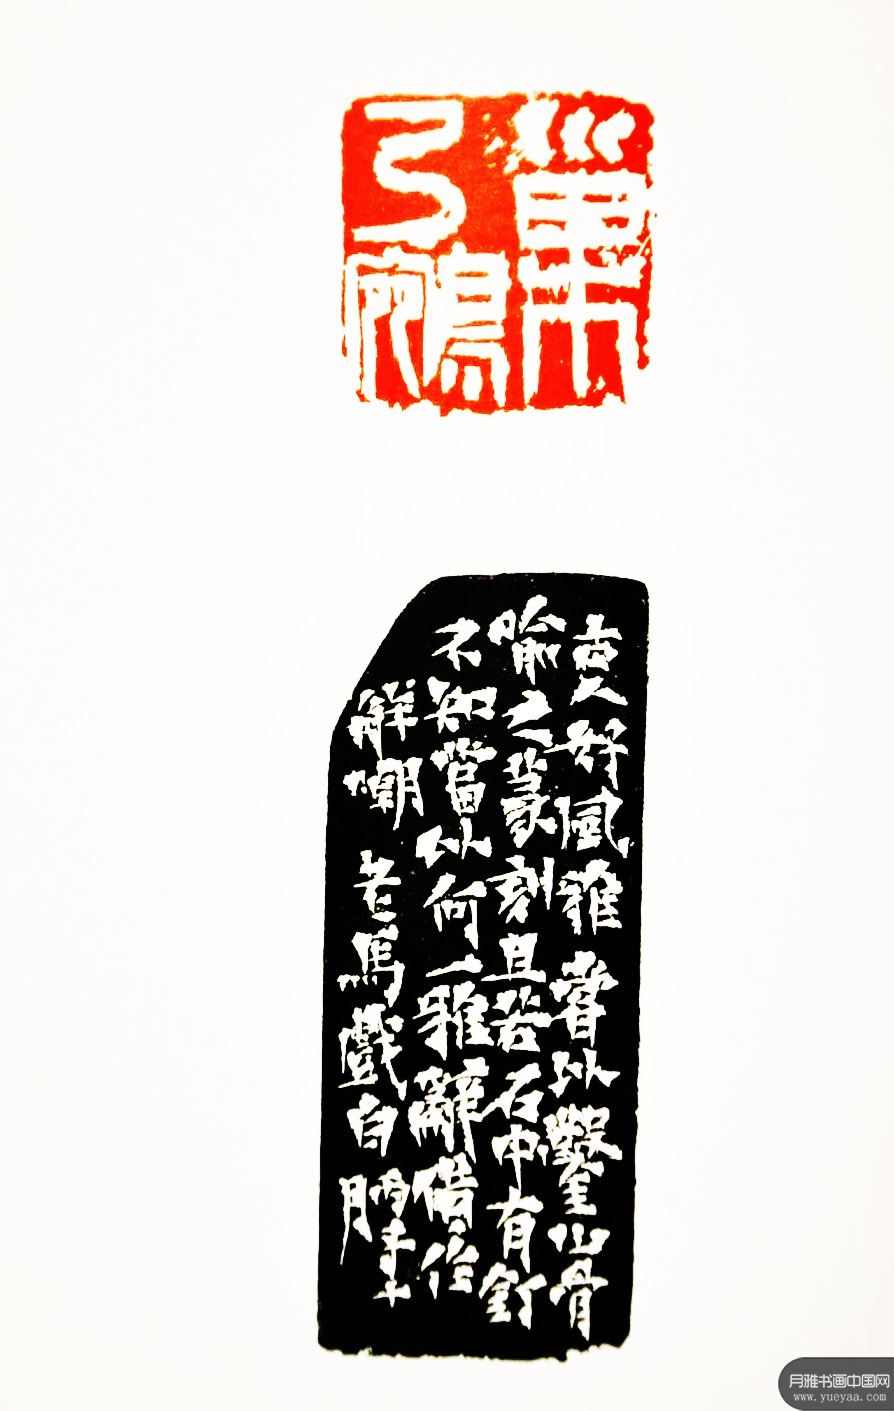 古人好風雅嘗以鑿山骨
喻之篆刻且若石中有釘
不知當以何一雅辭借作
解嘲 老馬戲白
月雅书画中国网
www.yueyaa.com